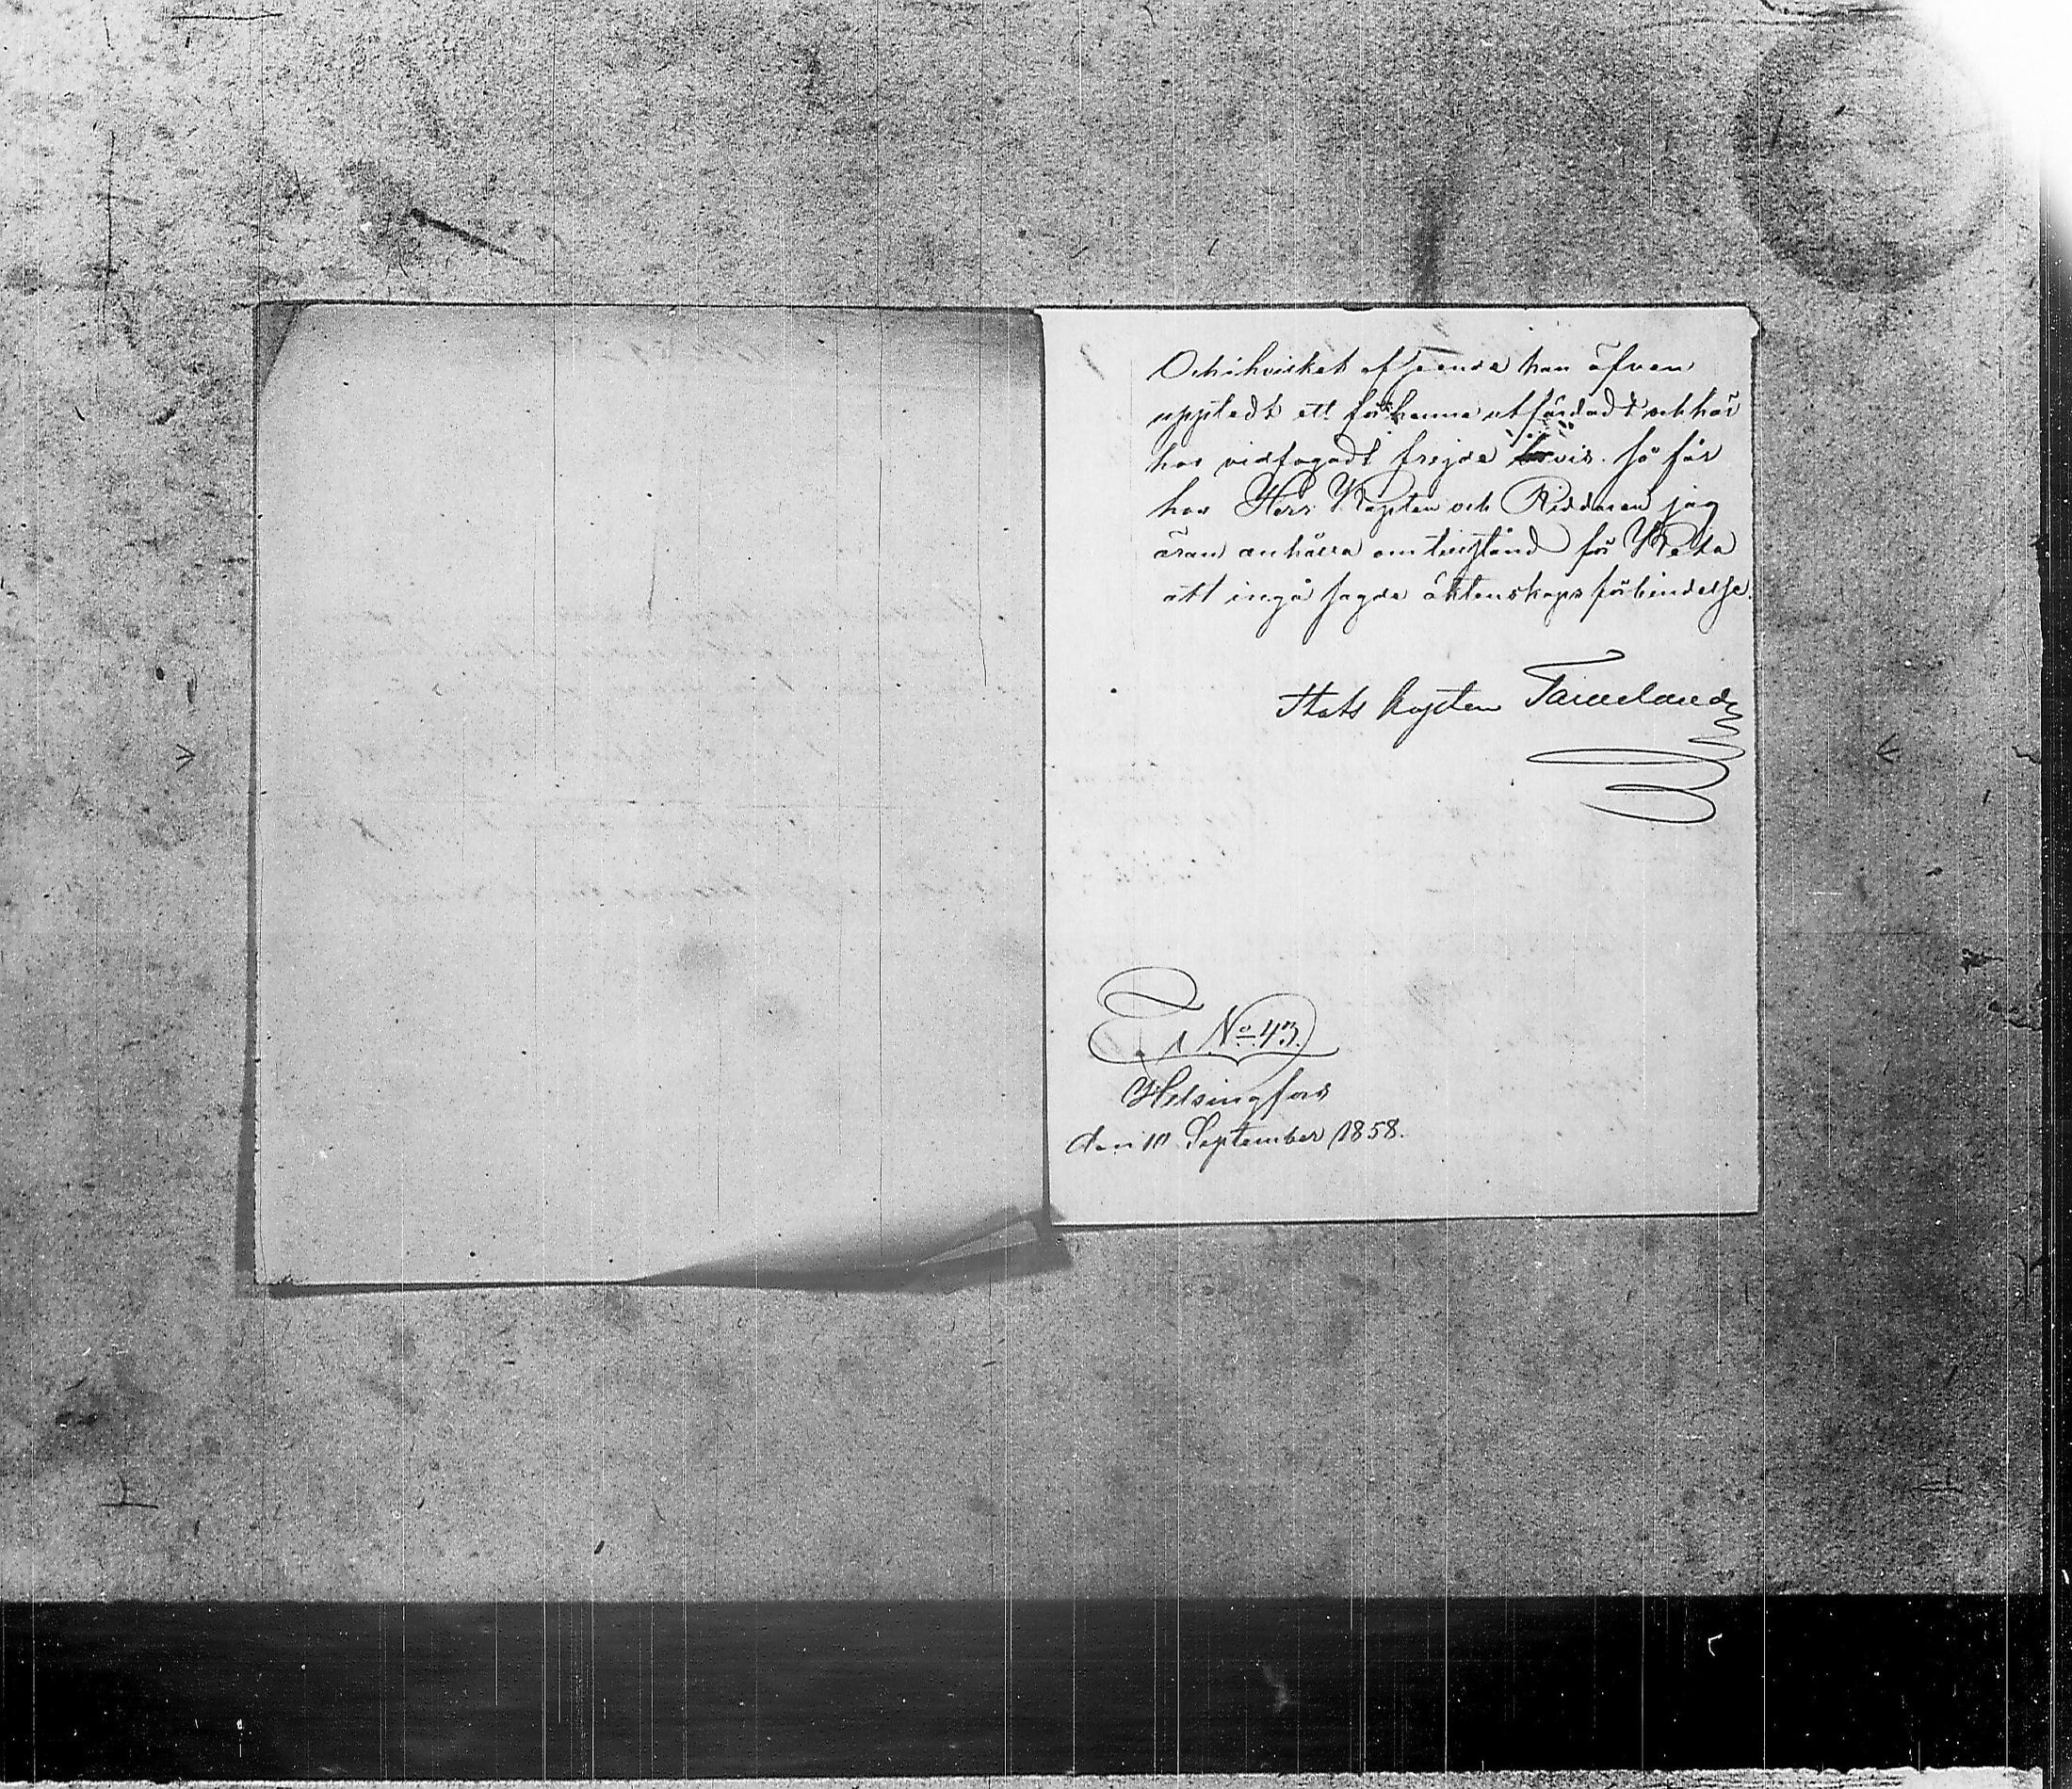 Och i hvilket afseende han äfven
uppledt ett för henne utfärdadt och här
hos vidfogadt frejde bevis. så får
hos Herr Kapten och Riddaren jag
äran anhålla om tillstånd för
att ingå sagde äktenskaps förbindelse.
Stabs Kapten
No 43.
Helsingfors
den 10 September 1858.